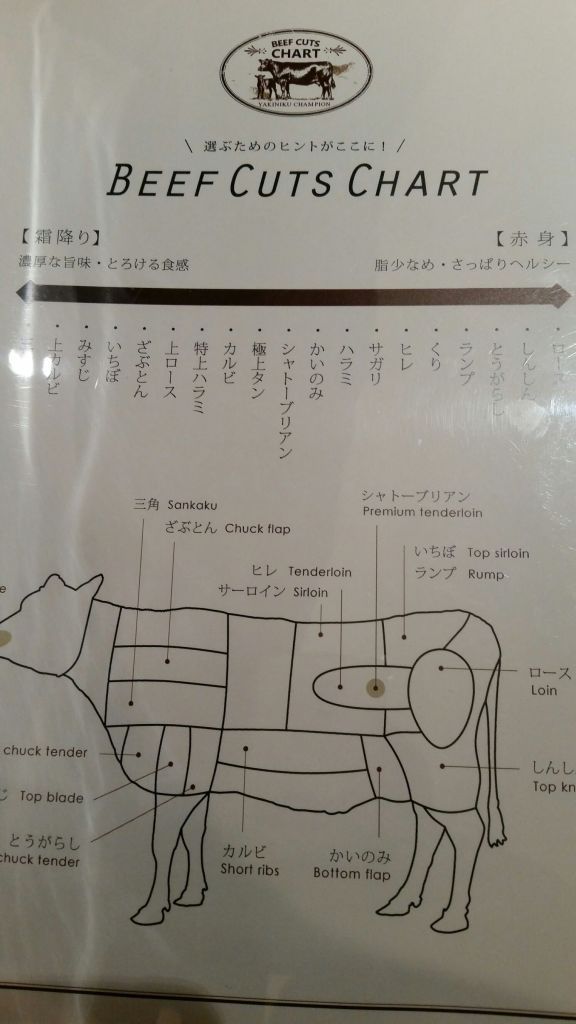 BEEF CUTS
CHART
YAKINIKU CHAMPION
\ 選ぶためのヒントがここに！ /
BEEF CUTS CHART
【霜降り】
【赤 身】
濃厚な旨味・とろける食感
脂少なめ・さっぱりヘルシー
・上カルビ
・みすじ
・いちぼ
・ざぶとん
・上ロース
・特上ハラミ
・カルビ
・極上タン
・シャトーブリアン
・かいのみ
・ハラミ
・サガリ
・ヒレ
・くり
・ランプ
・とうがらし
・しんしん
・ロース
三角 Sankaku
シャトーブリアン
Premium tenderloin
ざぶとん Chuck flap
いちぼ Top sirloin
ヒレ Tenderloin
ランプ Rump
サーロイン Sirloin
ロース
Loin
chuck tender
しんし
Top kn
じ Top blade
とうがらし
chuck tender
カルビ
Short ribs
かいのみ
Bottom flap